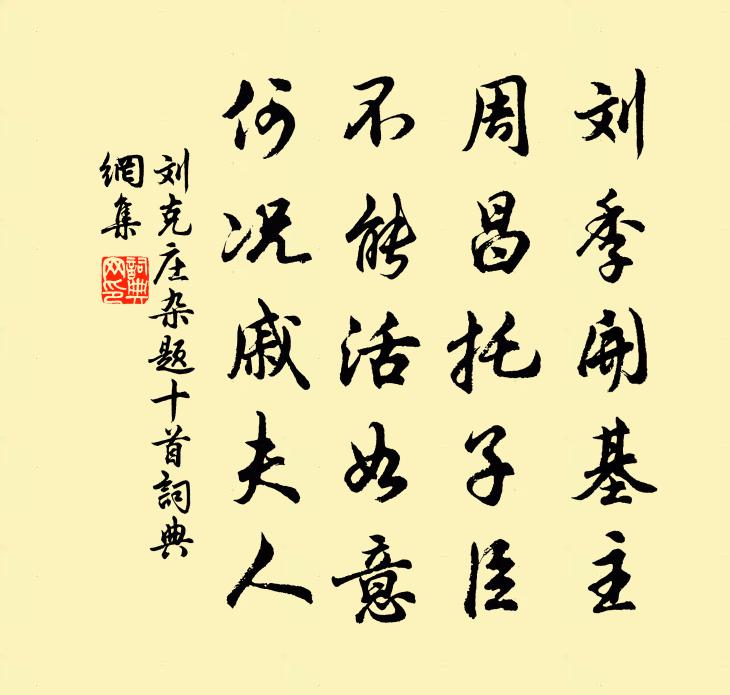 刘季開基主
周昌托子臣
不能活如意
何况戚夫人
刘克庄杂题十首詞典
網集
詞典網印